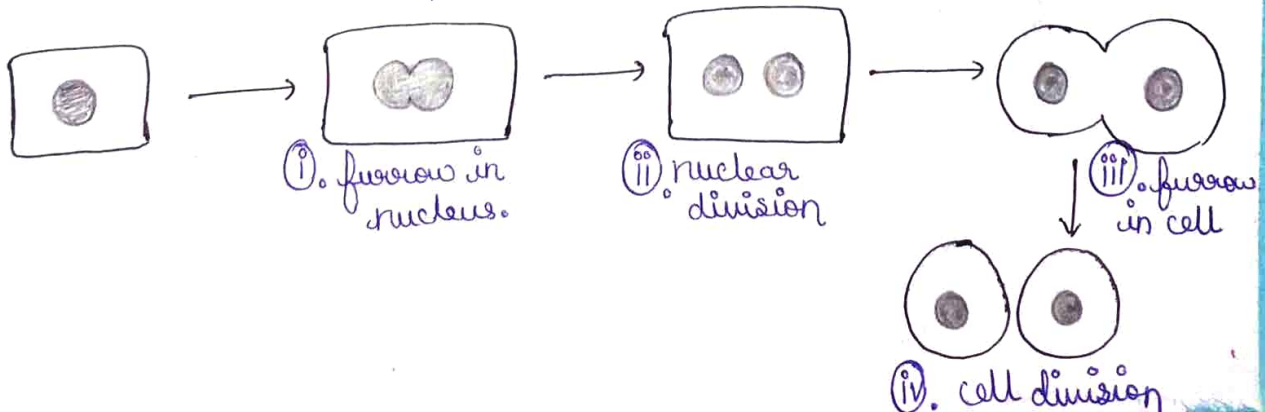 i. furrow in
nucleus.
ii. nuclear
division
iii. furrow
in cell
iv. cell division